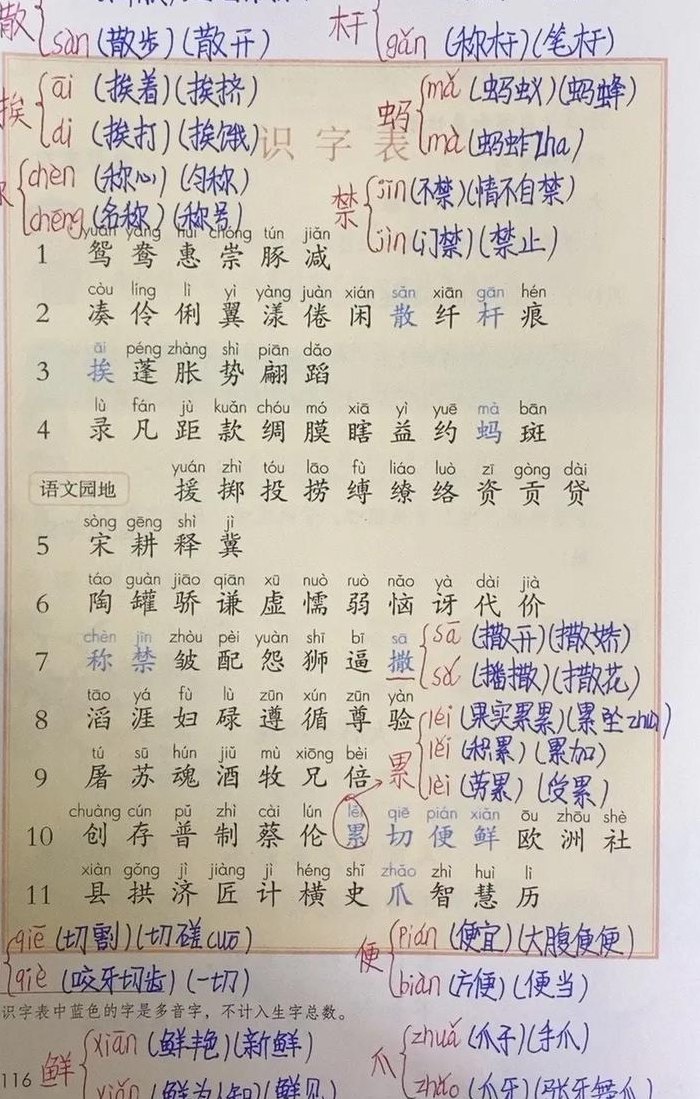 散 sàn (散步) (散开)
杆 gǎn (称杆) (笔杆)
挨 āi (挨着) (挨挤)
ái (挨打) (挨饿)
蚂 mǎ (蚂蚁) (蚂蜂)
mà (蚂蚱zha)
识字表
chèn (称心) (匀称)
chēng (名称) (称号)
禁 jīn (不禁) (情不自禁)
jìn (门禁) (禁止)
yuān yāng huì chóng tún jiǎn
1 鸳 鸯 惠 崇 豚 减
còu líng lì yì yàng juàn xián sǎn xiān gān hén
2 凑 伶 俐 翼 漾 倦 闲 散 纤 杆 痕
āi péng zhàng shì piān dǎo
3 挨 蓬 胀 势 翩 蹈
lù fán jù kuǎn chóu mó xiā yì yuē mà bān
4 录 凡 距 款 绸 膜 瞎 益 约 蚂 斑
yuán zhì tóu lāo fù liáo luò zī gòng dài
语文园地 援 掷 投 捞 缚 缭 络 资 贡 贷
sòng gēng shì jì
5 宋 耕 释 冀
táo guàn jiāo qiān xū nuò ruò nǎo yà dài jià
6 陶 罐 骄 谦 虚 懦 弱 恼 讶 代 价
chèn jīn zhòu pèi yuàn shī bī sā
7 称 禁 皱 配 怨 狮 逼 撒
sā (撒开) (撒娇)
sǎ (播撒) (撒花)
tāo yá fù lù zūn xún zūn yàn
8 滔 涯 妇 碌 遵 循 尊 验
累 léi (果实累累) (累坠zhuì)
lěi (积累) (累加)
lèi (劳累) (受累)
tú sū hún jiǔ mù xiōng bèi
9 屠 苏 魂 酒 牧 兄 倍
chuàng cún pǔ zhì cài lún lěi qiē pián xiān ōu zhōu shè
10 创 存 普 制 蔡 伦 累 切 便 鲜 欧 洲 社
xiàn gǒng jì jiàng jì héng shǐ zhǎo zhì huì lì
11 县 拱 济 匠 计 横 史 爪 智 慧 历
qiē (切割) (切磋cuō)
qiè (咬牙切齿) (一切)
便 pián (便宜) (大腹便便)
biàn (方便) (便当)
识字表中蓝色的字是多音字，不计入生字总数。
鲜 xiān (鲜艳) (新鲜)
xiǎn (鲜为人知) (鲜见)
爪 zhuǎ (爪子) (手爪)
zhǎo (爪牙) (张牙舞爪)
116